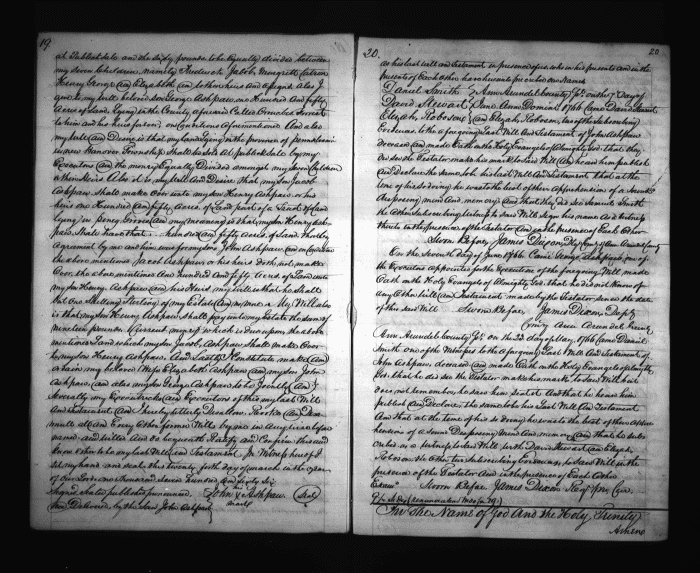 19.
at Publick Sale and the sixty pounds to be Equally divided between
my seven Children, namely Frederick Jacob, Margrett
Henry George and Elizabeth and to their heirs and assigns. Also I
give to my well beloved son George Ashpaw, one Hundred And fifty
Acres of Land Lying in the County aforesaid Called
to him and his heirs forever, on Conditions aforementioned. And also
my Will and Desire is that my land Lying in the province of pensilvania
in new Hanover Township shall be sold At publick sale by my
Executors and the money Equally Divided amongst my seven Children
Also it is my Will and Desire that my son Jacob
Ashpaw shall make Over unto my son Henry Ashpaw, or his
heirs one Hundred And fifty Acres of Land part of a Tract of Land
Lying in and my meaning is that my son Henry Ash
paw, shall have that Hundred and fifty acres of Land Whereby
Agreement by me and him was for my son John Ashpaw, and on Condition
the above mentioned Jacob Ashpaw or his heirs doth not make
Over the above mentioned And hundred And fifty Acres of Land unto
my son Henry Ashpaw and his Heirs my will is that he shall
but One Shilling Sterling of my Estate and no more. My Will also
is that my son Henry Ashpaw shall pay into my Estate the sum of
Nineteen pounds Current money which is due upon the above
mentioned Land which my son Jacob Ashpaw shall make Over
to my son Henry Ashpaw. And Lastly I Constitute make And
ordain my beloved Wife Elizabeth Ashpaw and my son John
Ashpaw, and also my son George Ashpaw to be Jointly And
Severally my Executrix and Executors of this my last Will
And testament and I hereby utterly Disallow Revoke and Disa
nnull all and Every Other former Wills by me in Any wise before
named and willed And do hereby Ratify and Confirm this and
none Other to be my last Will and Testament. In Witness whereof I
set my hand and seal this twenty forth day of march in the year
of our Lord one thousand seven hundred And Sixty Six
Signed sealed published pronounced John Ashpaw Seal
and Delivered by the said John Ashpaw mark
20. 20
as his last will and Testament in presence of us, who in his presents and in the
presents of Each Other have hereunto subscribed our Names
Daniel Smith Ann Arundel County Sct. on the 7 Day of
David Stewart June Anno Domini 1766 Came David Stewart
Elijah Robosson and Elijah Robosson, two of the subscribing
Evidences to the aforegoing Last Will And Testament of John Ashpaw
deceased and made Oath on the Holy Evangels of Almighty God that they
did see the Testator make his mark to said Will And heard him publish
And Declare the same to be his last Will And Testament that at the
time of his so doing he was to the best of their Apprehension of a sound
disposing mind And memory And that they did see Daniel Smith
the Other Subscribing Witness to said Will Sign his name as a Witness
thereto in the presence of the Testator and in the presence of Each Other
Sworn Before James Dixon Dep. Comry. of Ann Arundel County
On the Seventh day of June 1766. Came George Ashpaw one of
the Executors appointed for the Execution of the foregoing Will made
Oath on the Holy Evangels of Almighty God that he did not know of
Any Other Will and Testament made by the Testator since the date
of the said Will Sworn Before James Dixon Depty.
Comry. Ann Arundel County
Ann Arundel County Sct. on the 23 day of May, 1766 Came Daniel
Smith one of the Witnesses to the aforegoing Last Will And Testament of
John Ashpaw, deceased and made Oath on the Holy Evangels of Almighty
God that he did see the Testator make his mark to said Will but
does not remember he saw him Seal it And that he heard him
publish And Declare the same to be his Last Will And Testament
And that at the time of his so doing he was to the best of his Appre
hensions of a sound Disposing Mind And memory and that he subs
cribed as a Witness to said Will with David Stewart and Elijah
Robosson the Other two Subscribing Evidences to said Will in the
presence of the Testator And in the presence of Each Other
Sworn Before James Dixon
In the Name of God And the Holy Trinity
Amene